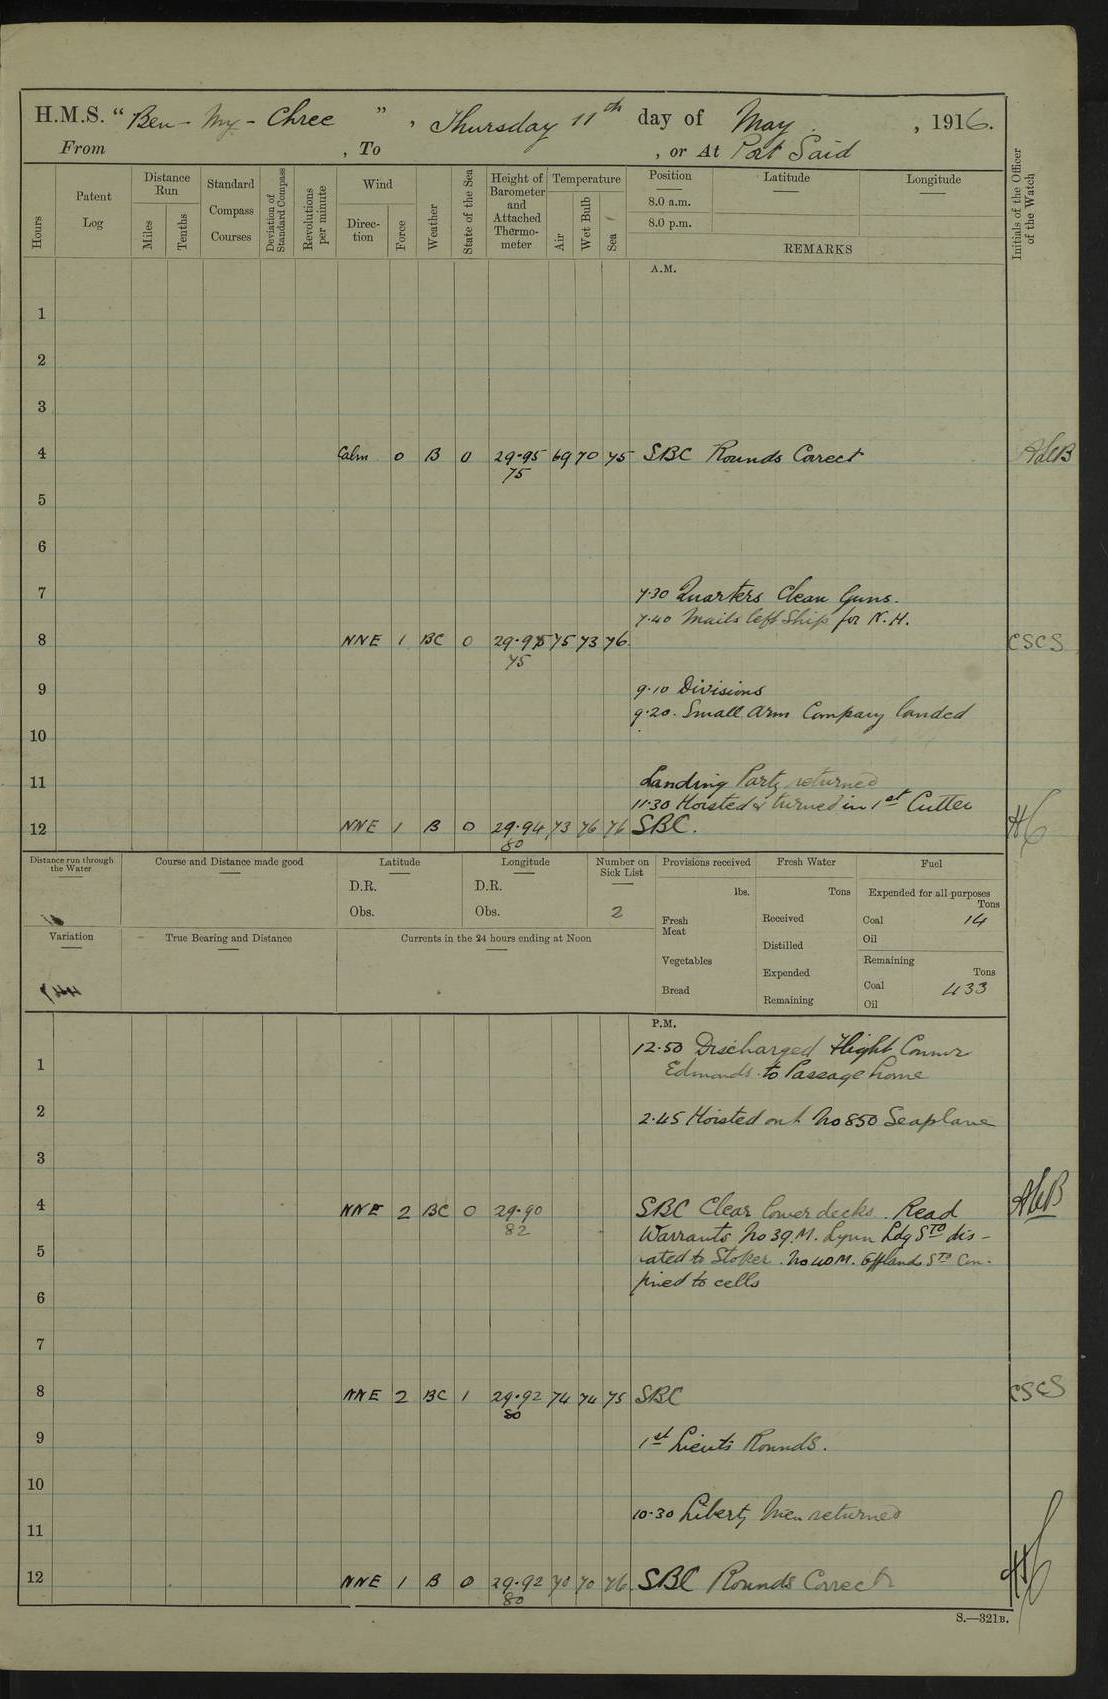 H.M.S. “Ben-My-Chree”, Thursday 11th day of May, 1916.
From , To , or At Port Said
Hours
Patent Log
Distance Run
Miles
Tenths
Standard Compass Courses
Deviation of Standard Compass
Revolutions per minute
Wind
Direc-tion
Force
Weather
State of the Sea
Height of Barometer and Attached Thermo-meter
Temperature
Air
Wet Bulb
Sea
Position
8.0 a.m.
8.0 p.m.
Latitude
Longitude
REMARKS
Initials of the Officer of the Watch
A.M.
1
2
3
4 Calm 0 B 0 29.95 69 70 75 SBC Rounds Correct
75
5
6
7
7.30 Quarters Clean Guns.
7.40 Mails left Ship for N.H.
8 NNE 1 BC 0 29.95 75 73 76 CSCS
75
9
9.10 Divisions
9.20. Small Arm Company landed
10
11
Landing Party returned
11.30 Hoisted & turned in 1st Cutter
12 NNE 1 B 0 29.94 73 76 76 SBC.
80
Distance run through the Water
Course and Distance made good
Latitude
D.R.
Obs.
Longitude
D.R.
Obs.
Number on Sick List
2
Provisions received
lbs.
Fresh Meat
Vegetables
Bread
Fresh Water
Tons
Received
Distilled
Expended
Remaining
Fuel
Expended for all purposes
Tons
Coal 14
Oil
Remaining
Tons
Coal 433
Oil
Variation
True Bearing and Distance
Currents in the 24 hours ending at Noon
P.M.
12.50 Discharged Flight Commr
1
Edmonds to Passage home
2
2.45 Hoisted out No 850 Seaplane
3
4 NNE 2 BC 0 29.90 SBC Clear lower decks. Read
82
Warrants No 39. M. Lynn Ldg Sto dis-
5
rated to Stoker. No 40 M. Sto Con-
fined to cells
6
7
8 NNE 2 BC 1 29.92 74 74 75 SBC CSCS
80
9
1st Lieuts Rounds.
10
10.30 Liberty Men returned
11
12 NNE 1 B 0 29.92 70 70 76 SBC Rounds Correct
80
S.—321B.